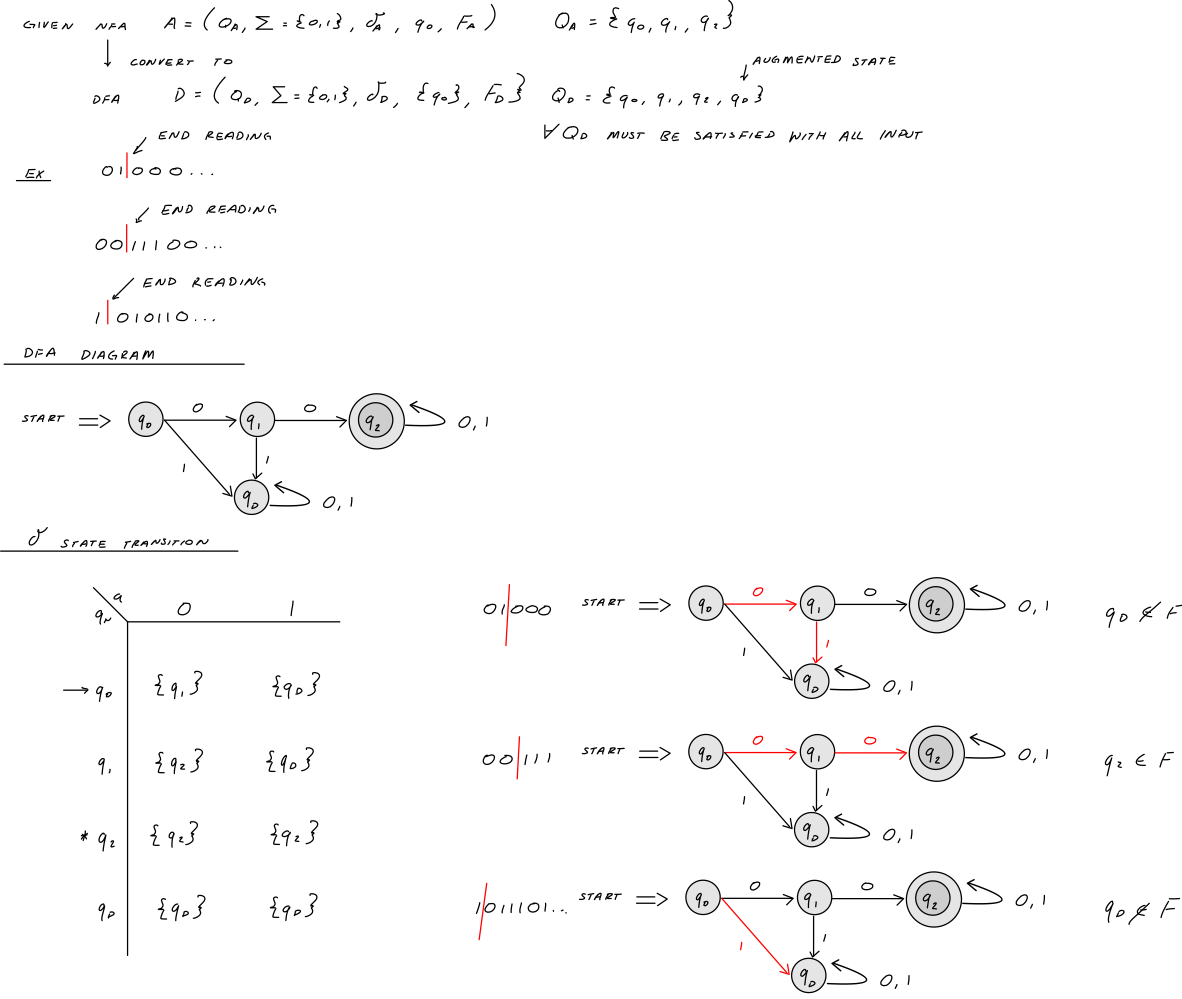 GIVEN NFA A = (Q_A, Σ = {0,1}, δ_A, q_0, F_A) Q_A = {q_0, q_1, q_2}
CONVERT TO AUGMENTED STATE
DFA D = (Q_D, Σ = {0,1}, δ_D, {q_0}, F_D} Q_D = {q_0, q_1, q_2, q_D}
END READING ∀ Q_D MUST BE SATISFIED WITH ALL INPUT
EX 01|000...
END READING
00|11100...
END READING
1|010110...
DFA DIAGRAM
START => q_0 0 q_1 0 q_2 0,1
1 1
q_D 0,1
δ STATE TRANSITION
q_N a 0 1
→ q_0 {q_1} {q_D}
q_1 {q_2} {q_D}
* q_2 {q_2} {q_2}
q_D {q_D} {q_D}
01|000 START => q_0 0 q_1 0 q_2 0,1 q_D ∉ F
1 1
q_D 0,1
00|111 START => q_0 0 q_1 0 q_2 0,1 q_2 ∈ F
1 1
q_D 0,1
1|011101.. START => q_0 0 q_1 0 q_2 0,1 q_D ∉ F
1 1
q_D 0,1